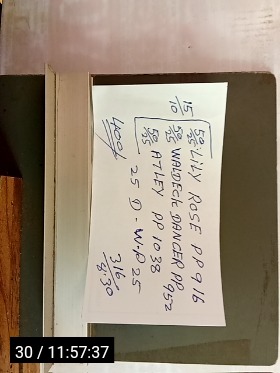 15/10
50/25 : LILY ROSE PP 916
50/25 WALDECK DANCER PP 952
50/25 ATLEY PP 1038
25 D - W.P 25
400/
316
8.30
30 / 11:57:37